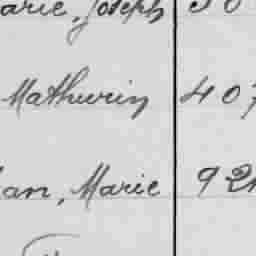 arie, Joseph 50
Mathurin 407
an, Marie 92